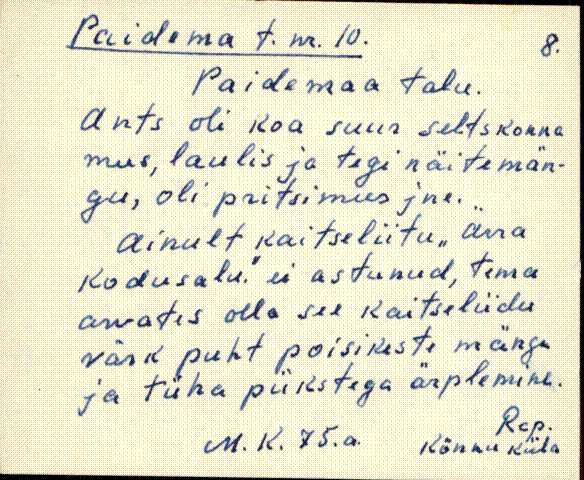 Paidema t. nr. 10.
8.
Paidemaa talu.
Ants oli koa suur seltskonna
mus, laulis ja tegi näitemän-
gu, oli pritsimus jne.
Ainult kaitseliitu „ärra
kodusalu." ei astunud, tema
arvates olla see kaitseliidu
värk puht poisikeste mängu
ja tüha pükstega ärplemine.
M. K. 75.a.
Rap.
Kõnnu küla